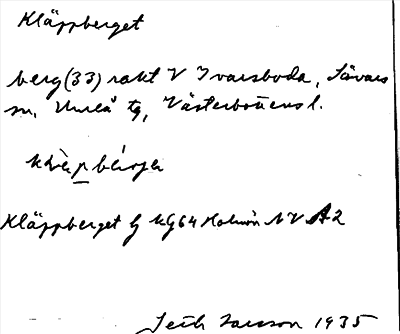 Kläppberget
berg (33) rakt V Ivarsboda, Sävars
sn, Umeå tg, Västerbottens l.
Kläppberget g KG64 Holmön NV A2
Larsson 1935